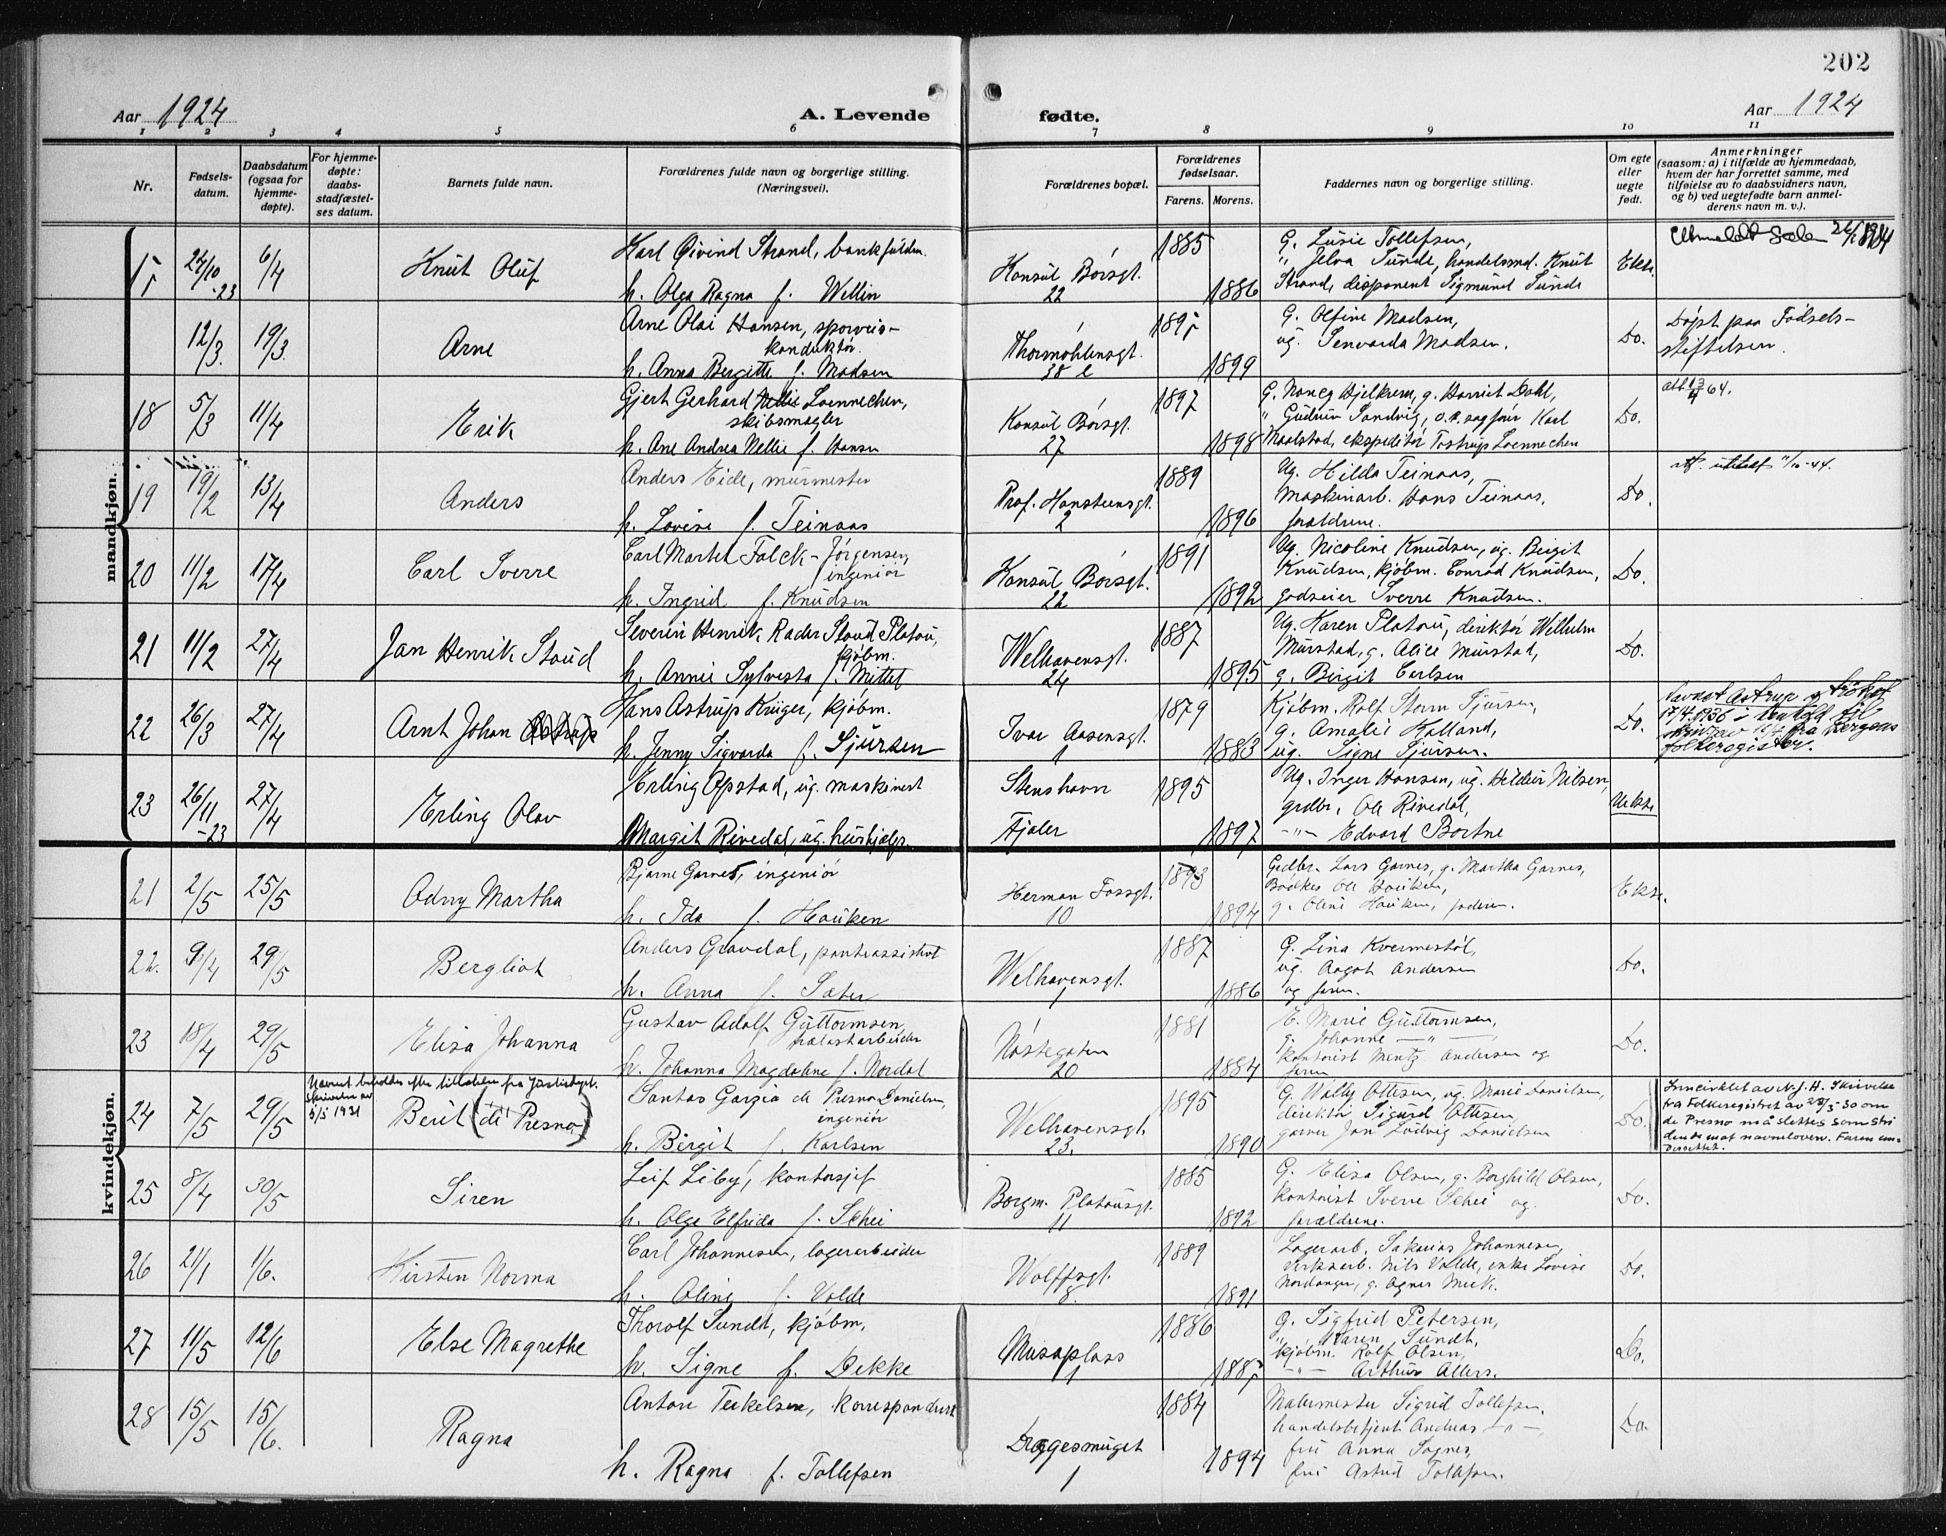 202
Aar 1924
A. Levende fødte.
Aar 1924
1 2 3 4 5 6 7 8 9 10 11
Nr.
Fødsels-
datum.
Daabsdatum
(ogsaa for
hjemme-
døpte).
For hjemme-
døpte:
daabs-
stadfæstel-
ses datum.
Barnets fulde navn.
Forældrenes fulde navn og borgerlige stilling.
(Næringsvei).
Forældrenes bopæl.
Forældrenes
fødselsaar.
Farens. Morens.
Faddernes navn og borgerlige stilling.
Om egte
eller
uegte
født.
Anmerkninger
(saasom: a) i tilfælde av hjemmedaab,
hvem der har forrettet samme, med
tilføielse av to daabsvidners navn,
og b) ved uegtefødte barn anmel-
derens navn m. v.).
mandkjøn.
24/10 -23
6/4
Knut Oluf
Karl Øivind Strand, bankfuldm.
h. Olga Ragna f. Wellin
Konsul Børsgt.
22
1885
1886
G. Lusie Tollefsen,
" Jelva Sunde, handelsmd. Knut
Strand, disponent Sigmund Sunde
Ekte.
12/3
19/3
Arne
Arne Olai Hansen, sporveis-
konduktør.
h. Anna Bergitte f. Madsen
Thormøhlensgt.
38
1895
1899
G. Olfine Madsen,
ug. Senvarda Madsen.
Do.
Døpt paa Fødsels-
stiftelsen.
18
5/3
11/4
Erik
Gjert Gerhard Loennechen,
skibsmegler
h. Ane Andrea Nellie f. Hansen
Konsul Børsgt.
27
1897
1898
G. Nancy Hjelkrem, g. Harriet Dahl,
" Gudrun Sandvig, o.r.sagfører Karl
Maalstad, ekspeditør Tostrup Loennechen
Do.
19
19/2
13/4
Anders
Anders Eide, murmester
h. Lovise f. Teinaas
Prof. Hansteensgt.
2
1889
1896
Ug. Hilda Teinaas,
Maskinarb. Hans Teinaas,
forældrene.
Do.
att. utstedt 11/10-44.
20
11/2
17/4
Carl Sverre
Carl Martel Falck-Jørgensen,
ingeniør
h. Ingrid f. Knudsen
Konsul Børsgt.
22
1891
1892
Ug. Nicoline Knudsen, ug. Birgit
Knudsen, kjøbm. Conrad Knudsen,
godseier Sverre Knudsen.
Do.
21
11/2
27/4
Jan Henrik Stoud
Severin Henrik Rader Stoud Platou,
kjøbm.
h. Annie Sylvesta f. Mittet
Welhavensgt.
24
1887
1895
Ug. Karen Platou, direktør Wilhelm
Mürstad, g. Alice Mürstad,
g. Birgit Carlsen
Do.
22
26/3
27/4
Arnt Johan Astrup
Hans Astrup Krüger, kjøbm.
h. Jenny Sigvarda f. Sjursen
Ivar Aasensgt.
1
1879
1883
Kjøbm. Rolf Storm Sjursen,
g. Amalie Holland,
ug. Signe Sjursen.
Do.
Navnet Astrup strøket
17/4.1936 i henhold til
skriv av fra Bergens
folkeregister.
23
26/11 -23
27/4
Erling Olav
Erling Opstad, ug. maskinist
Margit Rivedal, ug. hushjelp.
Stenshavn
Fjaler
1895
1897
Ug. Inger Hansen, ug. Hildur Nilsen,
grdbr. Ole Rivedal,
-"- Edvard Bortne
Uekte
kvindekjøn.
21
2/5
25/5
Odny Martha
Bjarne Garnes, ingeniør
h. Ida f. Hauken
Herman Fossgt.
10
1893
1894
Grdbr. Lars Garnes, g. Martha Garnes,
Bødker Ole Hauken,
g. Oline Hauken, faderen.
Ekte.
22.
9/4
29/5
Bergliot
Anders Gravdal, panteassistent
h. Anna f. Sæter
Welhavensgt.
1
1887
1886
G. Lina Kvernestøl,
ug. Aagot Andersen
og faren.
Do.
23
18/4
29/5
Elisa Johanna
Gustav Adolf Guttormsen,
h. Johanna Magdalene f. Nordal
Nøstegaten
20
1881
1884
E. Marie Guttormsen,
g. Johanne -"-
kontorist Mentz Andersen og
faren
Do.
24
7/5
29/5
Navnet beholdes efter tillatelse fra Justisdept.
skrivelse av
5/5 1931
Berit (de Presno)
Santos Garzia de Presno Danielsen,
ingeniør
h. Birgit f. Karlsen
Welhavensgt.
23.
1895
1890
G. Wally Ottesen, ug. Marie Danielsen,
direktør Sigurd Ottesen,
garver Jan Ludvig Danielsen
Do.
Inncirklet av N.J.H. Skrivelse
fra Folkeregistret av 28/5 30 om
de Presno må slettes som stri
dende mot navneloven. Faren un-
derrettet.
25
8/4
30/5
Siren
Leif Liby, kontorsjef
h. Olga Elfrida f. Schei
Borgm. Platousgt.
11
1885
1892
G. Elisa Olsen, g. Borghild Olsen,
kontorist Sverre Schei og
forældrene.
Do.
26
21/1
1/6.
Kirsten Norma
Carl Johannesen, lagerarbeider
h. Oline f. Valde
Wolffsgt.
8.
1889
1891
Lagerarb. Sakarias Johannesen
Virksarb. Nils Valde, enke Lovise
Nordanger, g. Agnes Meek.
Do.
27
11/5
12/6
Else Magrethe
Thorolf Sundt, kjøbm,
h. Signe f. Dekke
Muséplass
1
1886
1885
G. Sigfrid Petersen,
" Karen Sundt,
kjøbm. Rolf Olsen,
-"- Arthur Allers.
Do.
28
15/5
15/6.
Ragna
Anton Terkelsen, korrespondent
h. Ragna f. Tollefsen
Dreggesmuget
1
1884
1894
Malermester Sigrid Tollefsen,
handelsbetjent Andreas -"-,
fru Anna Sognes,
fru Astrid Tollefsen.
Do.